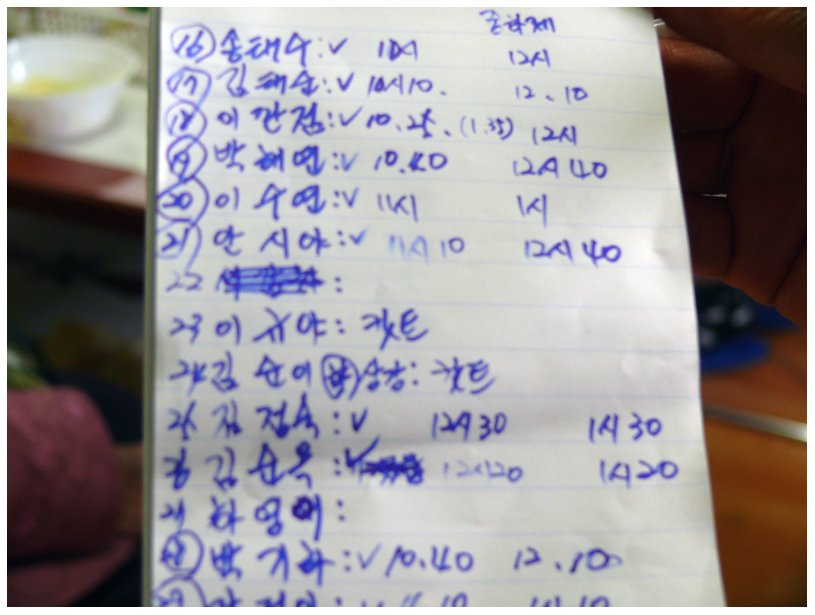 중화제
16 송태수:✓ 10시 12시
17 김태순:✓ 10시10. 12.10
18 이깐점:✓ 10.25.(1.35) 12시
19 박혜연✓ 10.40 12시 40
20 이수연:✓ 11시 1시
21 안시야:✓ 11시10 12시 40
22 :
23 이규야: 컷트
24 김순이 : 컷트
25 김점숙:✓ 12시30 1시 30
26 김순옥:✓ 12시20 1시20
27 하영이:
28 박기하:✓ 10.40 12.10